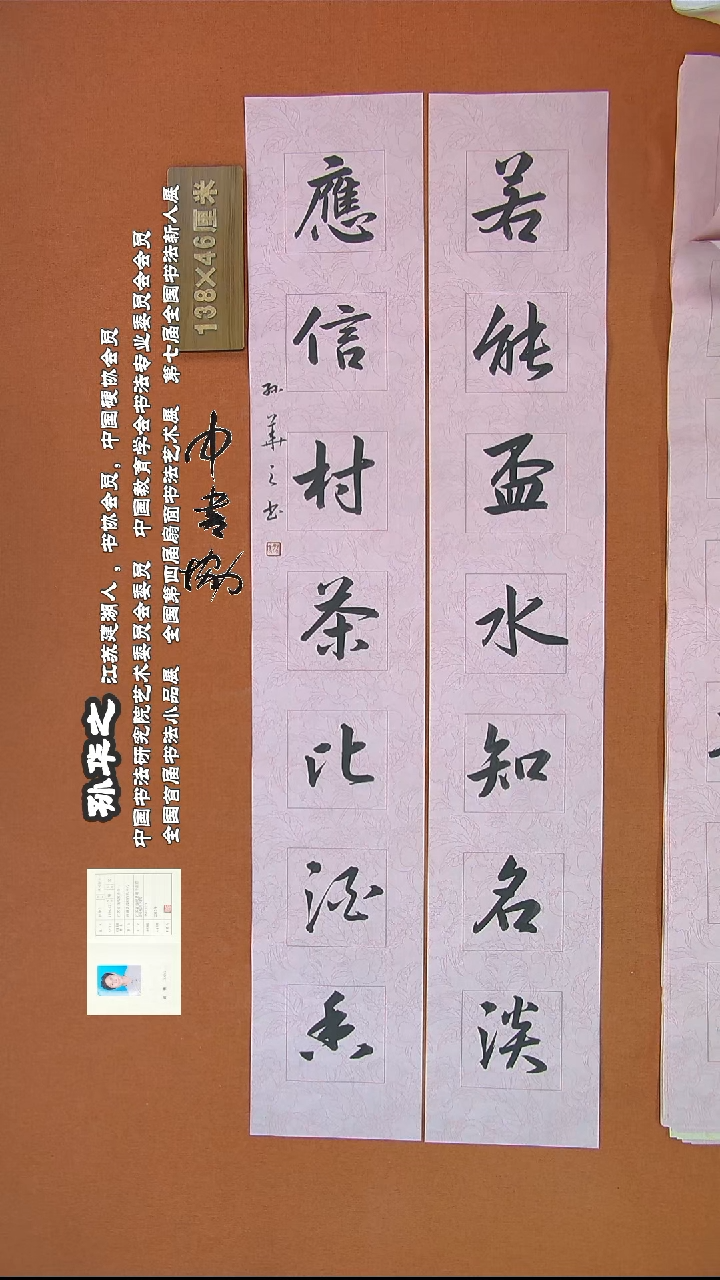 若能盃水知名淡
應信村茶比酒香
孙華之书
138×46厘米
中书协
孙华之 江苏建湖人，书协会员，中国硬协会员
中国书法研究院艺术委员会委员 中国教育学会书法专业委员会会员
全国首届书法小品展 全国第四届扇面书法艺术展 第七届全国书法新人展